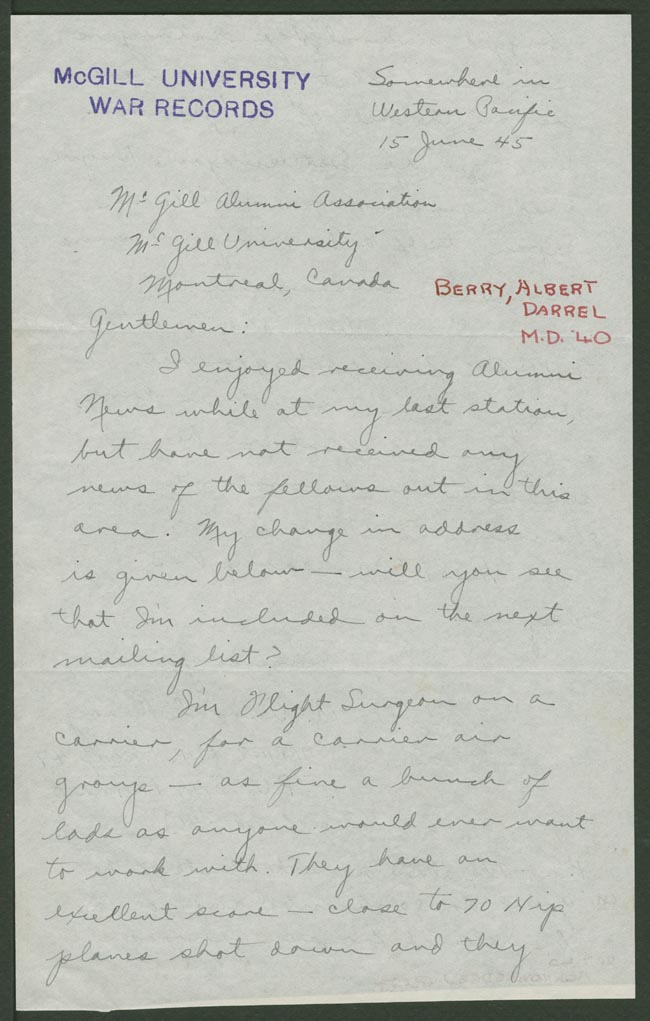 McGILL UNIVERSITY
WAR RECORDS
Somewhere in
Western Pacific
15 June 45
Mc Gill Alumni Association
Mc Gill University
Montreal, Canada
BERRY, ALBERT
DARREL
M.D. '40
Gentlemen:
I enjoyed receiving Alumni
News while at my last station,
but have not received any
news of the fellows out in this
area. My change in address
is given below — will you see
that I'm included on the next
mailing list?
I'm Flight Surgeon on a
carrier, for a carrier air
group — as fine a bunch of
lads as anyone would ever want
to work with. They have an
excellent score — close to 70 Nip
planes shot down and they